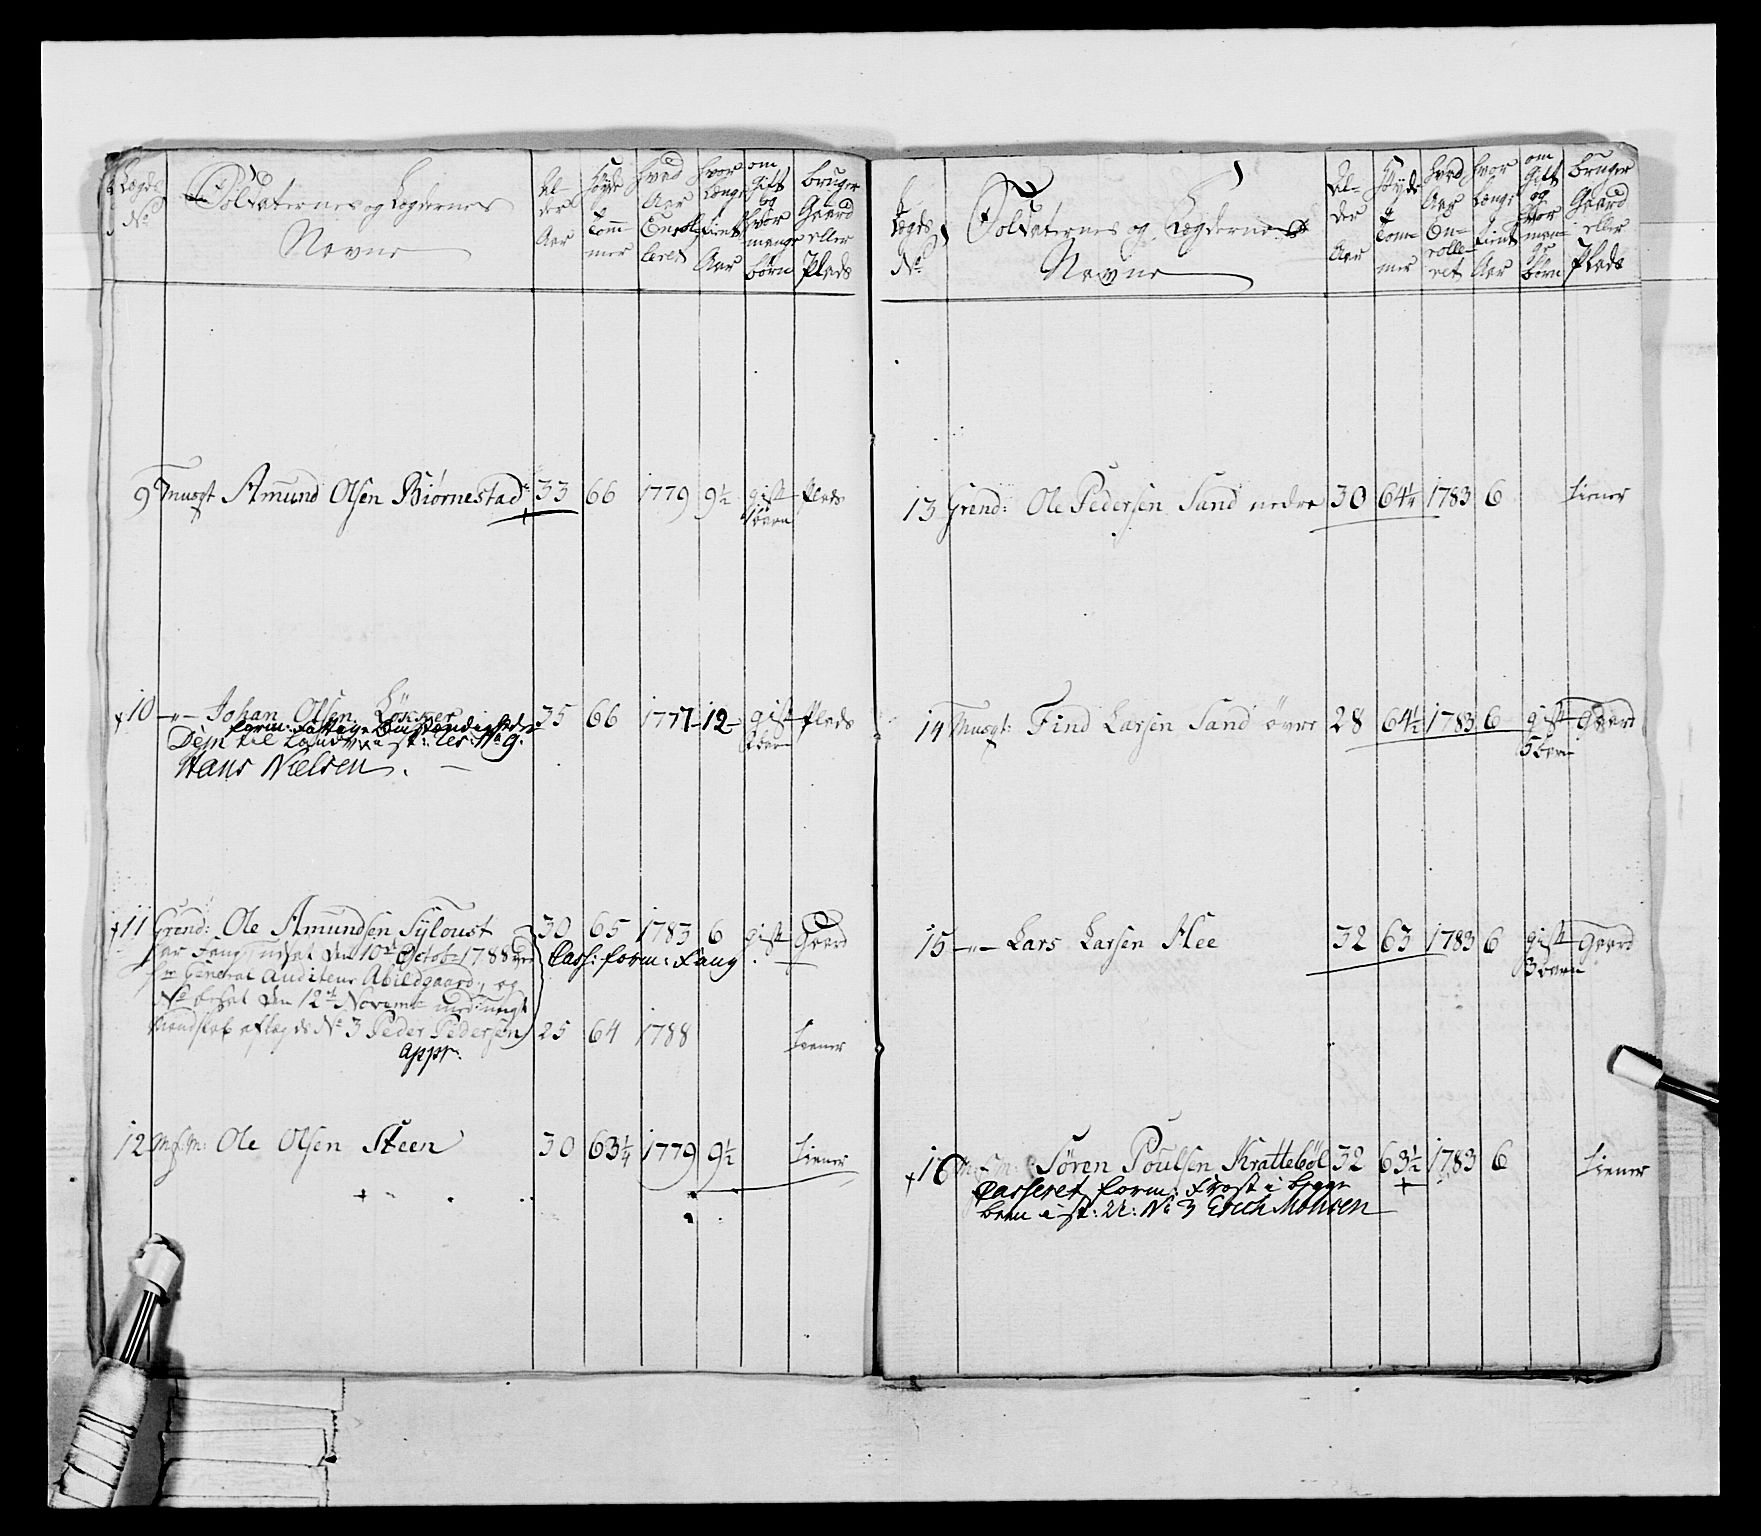 Lægds No
Soldaternes og Lægdernes Navne
Alder Aar
Høyde Tommer
hvad Aar Enrolleret
hvor Længe tient Aar
om Gift og hvor mange børn
bruger Gaard eller Plads
9 Musqt Amund Olsen Biørnestad 33 66 1779 9½ gift Plads
1 barn
10 -"- Johan Olsen Løkker 35 66 1777 12 gift Plads
form:
Dem til Landv: i st: No 9.
Hans Nielsen.
11 Grend: Ole Amundsen Syloust 30 65 1783 6 gift Gaard
den 10de Octobr 1788
Cass: form: Fang
General Auditeur Abildgaard, og
den 12te Novembr
No 3 Peder Pedersen 25 64 1788 tiener
appr.
12 Ole Olsen Steen 30 63¼ 1779 9½ tiener
Lægds No
Soldaternes og Lægdernes Navne
Alder Aar
Høyde Tommer
hvad Aar Enrolleret
hvor Længe tient Aar
om Gift og hvor mange børn
bruger Gaard eller Plads
13 Grend: Ole Pedersen Sand nedre 30 64¼ 1783 6 tiener
14 Musqt: Find Larsen Sand øvre 28 64½ 1783 6 gift Gaard
15 -"- Lars Larsen Flee 32 63 1783 6 gift Gaard
3 barn
16 Søren Poulsen Krattebøl 32 63½ 1783 6 tiener
Casseret form: Frost i begge
been i st: No 3 Erich Monsen